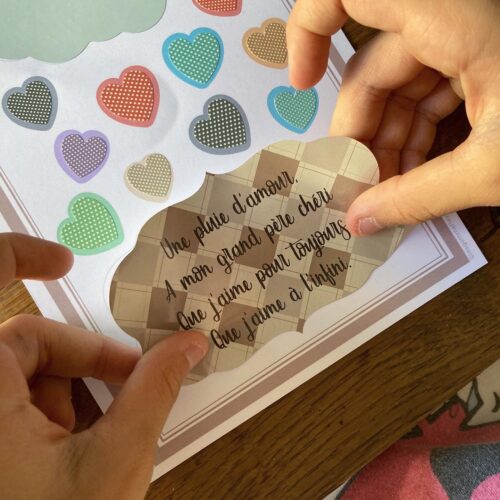 Une pluie d'amour,
A mon grand père chéri
Que j'aime pour toujours
Que j'aime à l'infini.